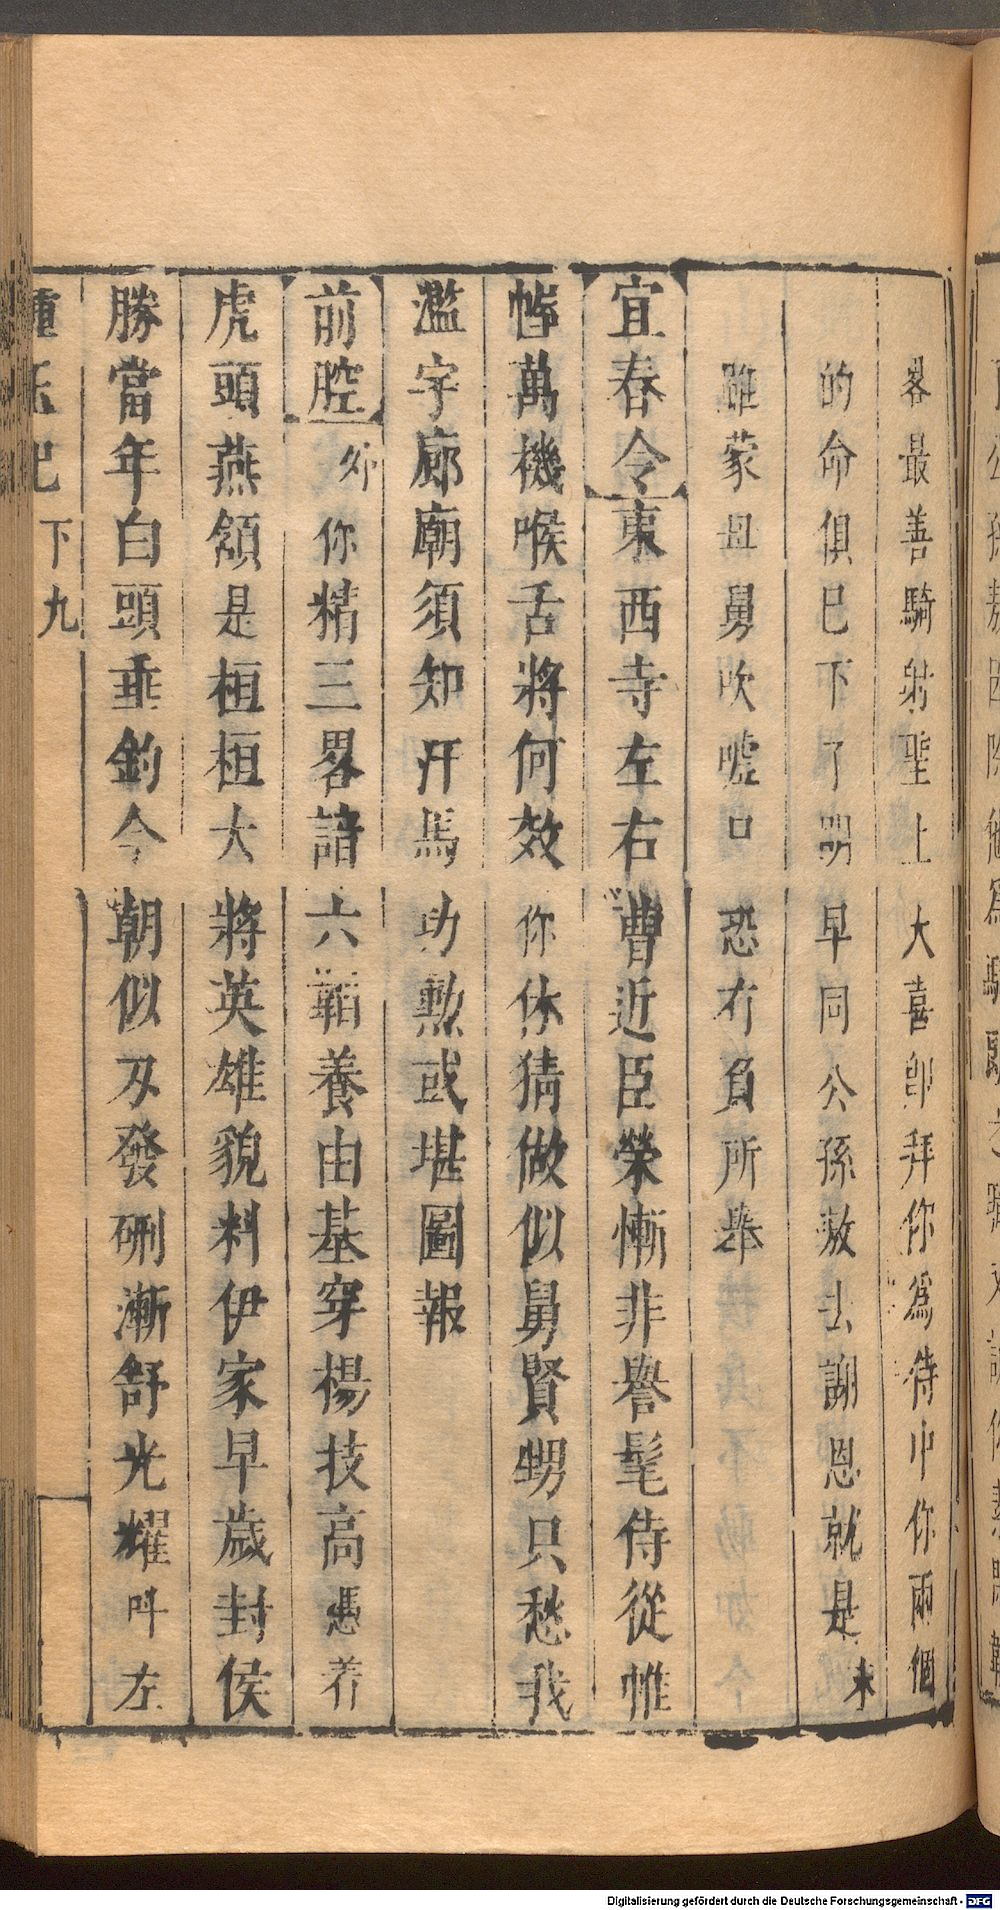 畧最善騎射聖上大喜卽拜你爲待中你兩個
的命俱巳下了明早同公孫敖去謝恩就是末
雖蒙丑舅吹噓口恐有負所舉
宜春令東西寺左右曹近臣榮慚非譽髦侍從惟
惟萬機喉舌將何效你休猜做似舅賢甥只愁我
濫宇廊廟須知汗馬功勲或堪圖報
前腔外你精三畧諳六韜養由基穿楊技高憑着
虎頭燕頷是桓桓大將英雄貌料伊家早歲封侯
勝當年白頭垂釣今朝似刃發硎漸舒光耀呌左
種玉記 下 九
Digitalisierung gefördert durch die Deutsche Forschungsgemeinschaft - DFG